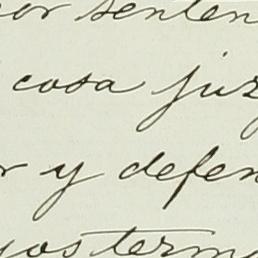 por senten
cosa juz
r y defen
yos term